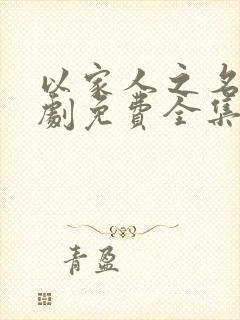 以家人之名
劇免費全集
青盈